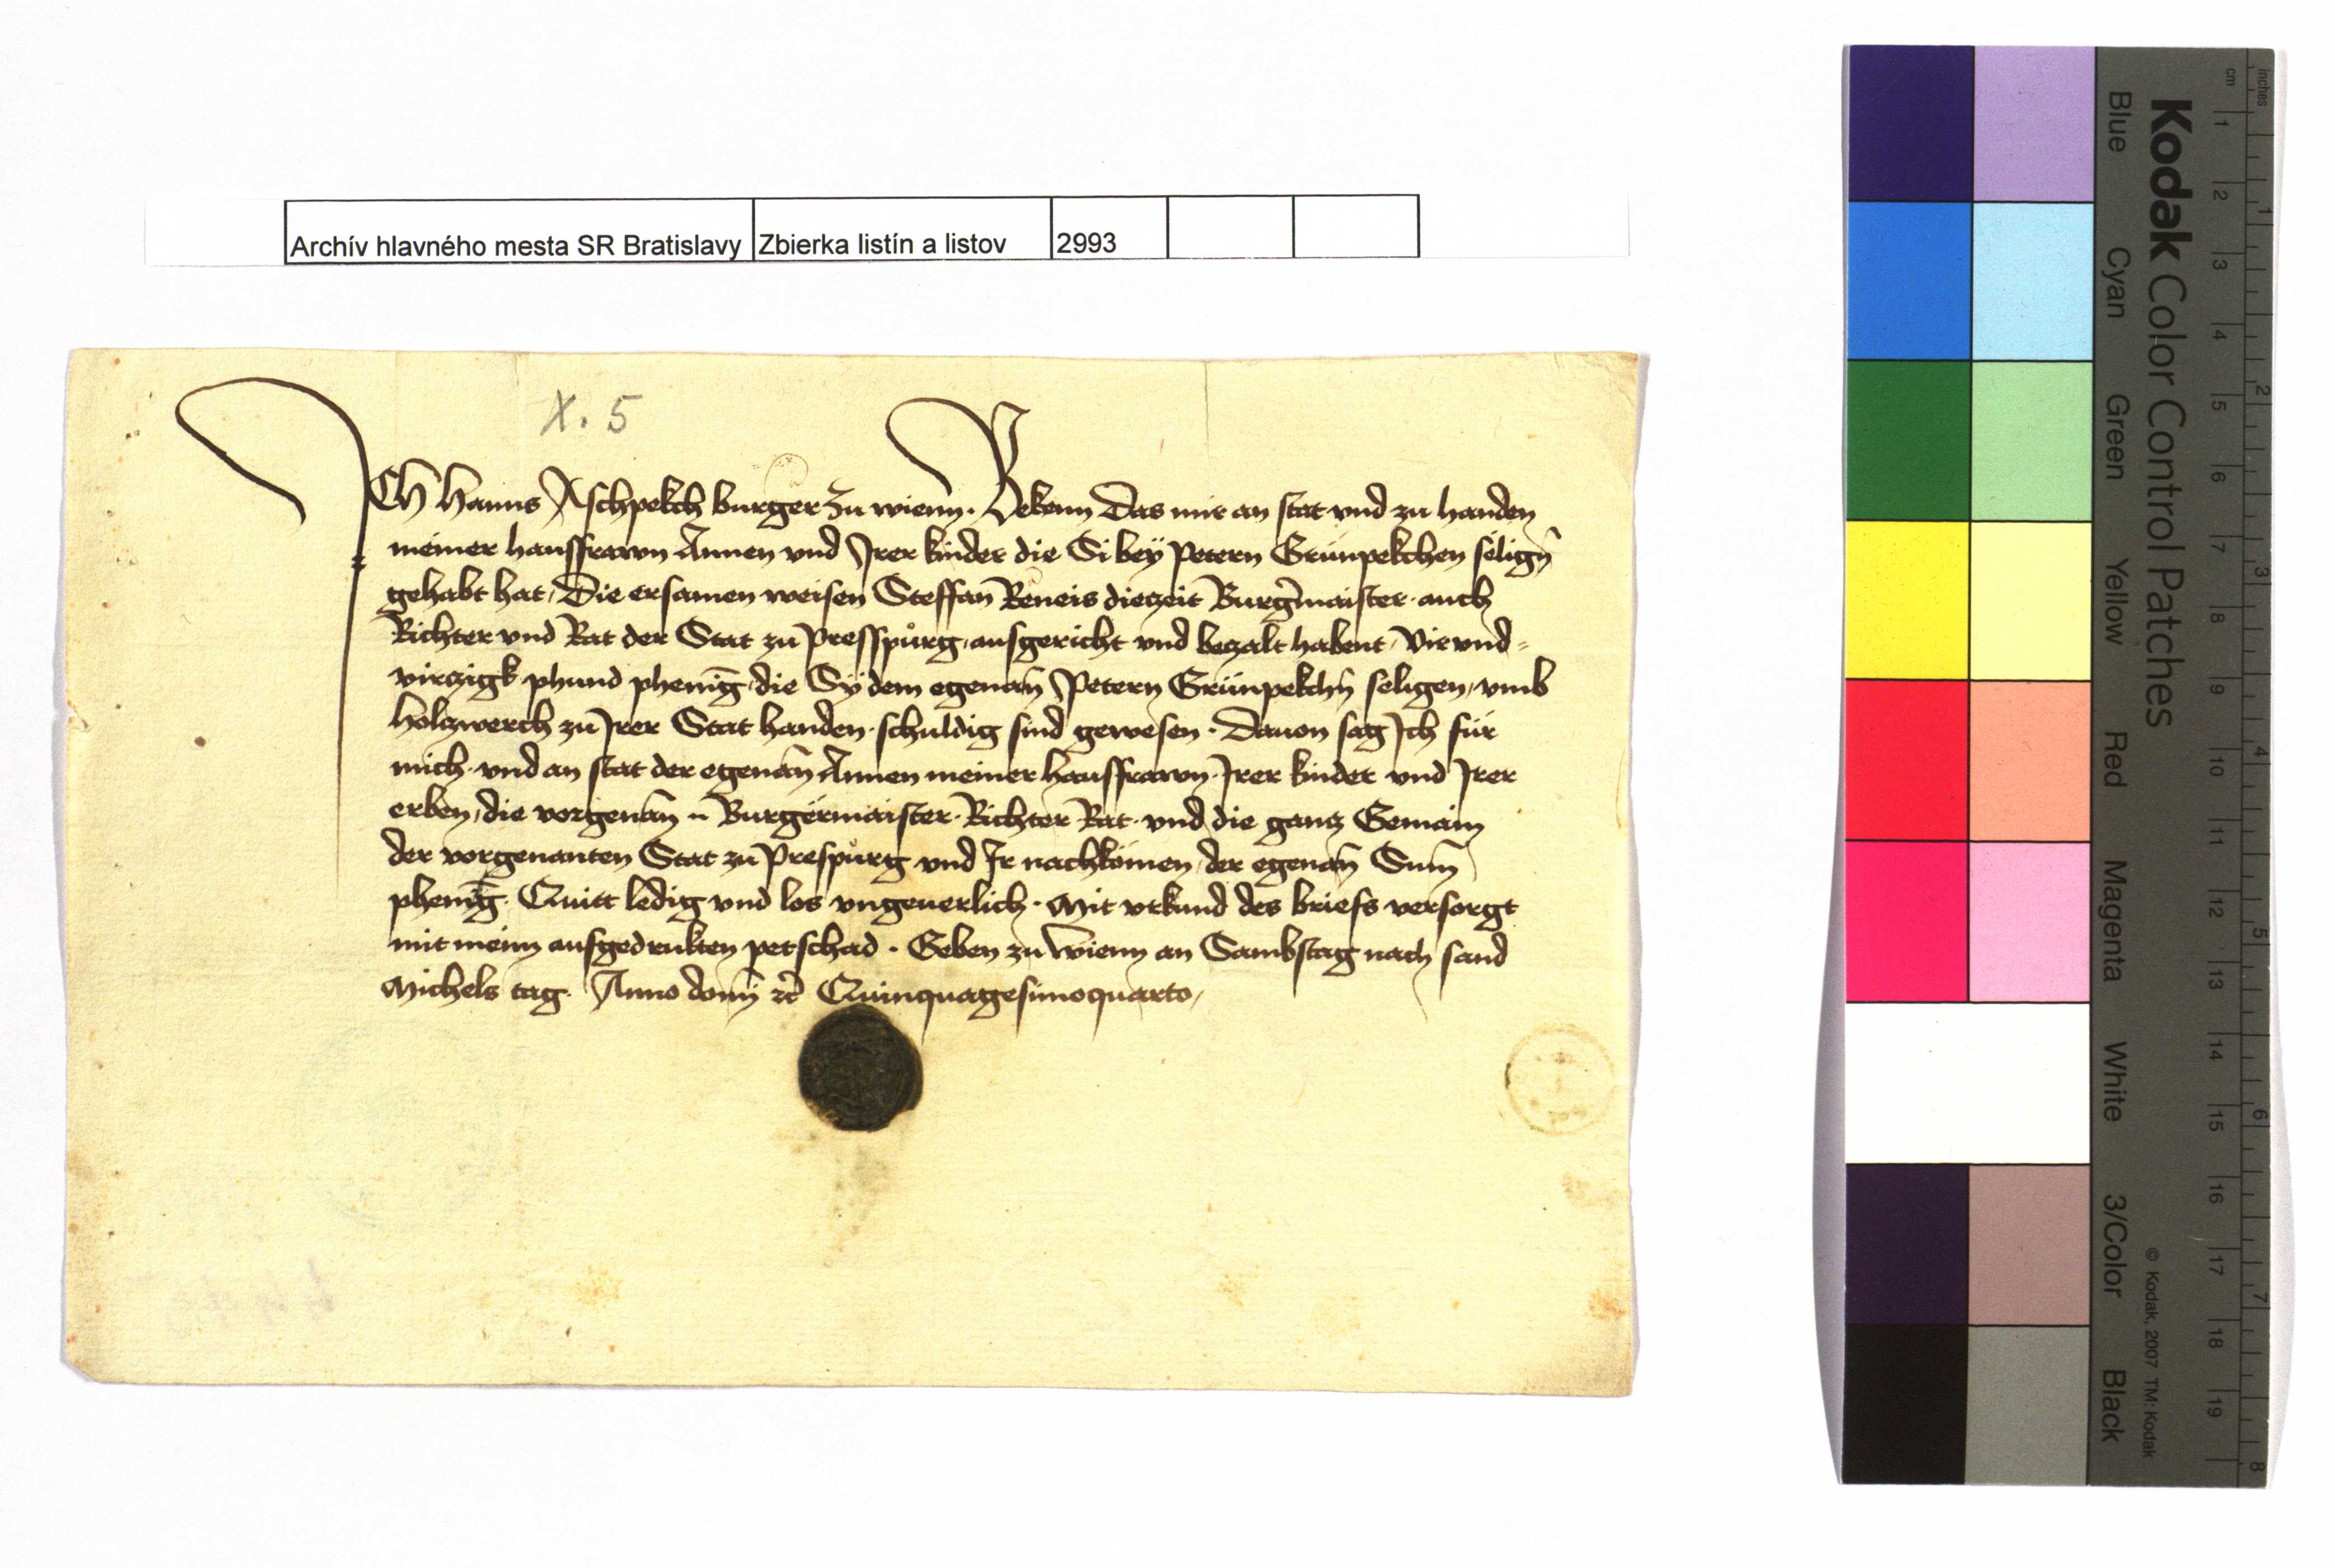 Archív hlavného mesta SR Bratislavy Zbierka listín a listov 2993
X. 5
ICh Hanns Aschpekch burger zu wienn. Bekenn Das mir an stat vnd zu handen
meiner hausfrawn Annen vnd Irer kinder die Si bey Petern Grünpekchen séligñ
gehabt hat, Die ersamen weisen Steffan Reneis diezeit Burgermaister auch
Richter vnd Rat der Stat zu Presspůrg, ausgericht vnd beczalt habent, Vir vnd=
virczigk phund phenīg, die Sÿ dem egenañ Petern Grünpekchñ seligen, vmb
holczwerch zu Irer Stat handen schuldig sind gewesen. Dauon sag Ich für
mich vnd an stat der egenañ Annen meiner hausfrawn Irer kinder vnd Irer
erben, die vorgenañ Burgermaister Richter Rat vnd die gancz Gemain
der vorgenanten Stat zu Prespůrg vnd Ir nachkömen, der egenañ Sum̄
phenīg. Quitt ledig vnd los vngeuerlich. Mit vrkund des briefs versorgt
mit meim aufgedrukten petschad. Geben zu wienn an Sambstag nach sand
Michels tag. Anno domī ꝛc̄ Quinquagesimoquarto,
Kodak Color Control Patches
Blue Cyan Green Yellow Red Magenta White 3/Color Black
© Kodak, 2007 TM: Kodak
inches 1 2 3 4 5 6 7 8
cm 1 2 3 4 5 6 7 8 9 10 11 12 13 14 15 16 17 18 19